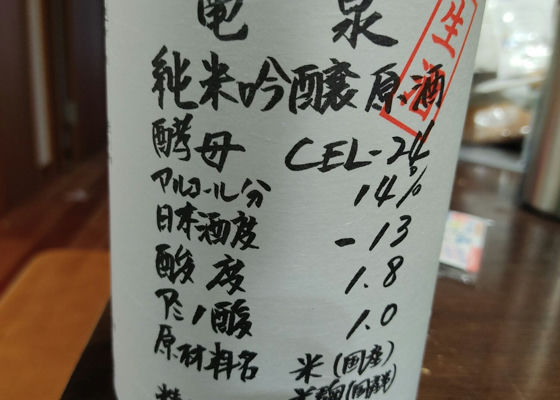 亀泉
純米吟醸原酒
生酒
酵母 CEL-24
アルコール分 14%
日本酒度 -13
酸度 1.8
アミノ酸 1.0
原材料名 米(国産)
米麹(国産米)